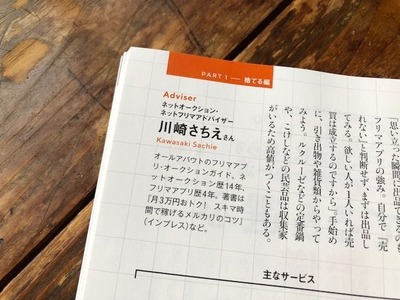 PART 1 — 捨てる編
Adviser
ネットオークション・
ネットフリマアドバイザー
川崎さちえさん
Kawasaki Sachie
オールアバウトのフリマアプ
リ・オークションガイド。ネ
ットオークション歴14年、
フリマアプリ歴4年。著書は
『月3万円おトク! スキマ時
間で稼げるメルカリのコツ』
(インプレス)など。
「思い立った瞬間に出品できるのも
フリマアプリの強み。自分で『売
れない』と判断せず、まずは出品し
てみる。欲しい人が1人いれば売
買は成立するのですから」。手始め
に、引き出物や雑貨類からやって
みよう。ルクルーゼなどの定番鍋
や、こけしなどの民芸品は収集家
がいるため高値がつくこともある。
主なサービス